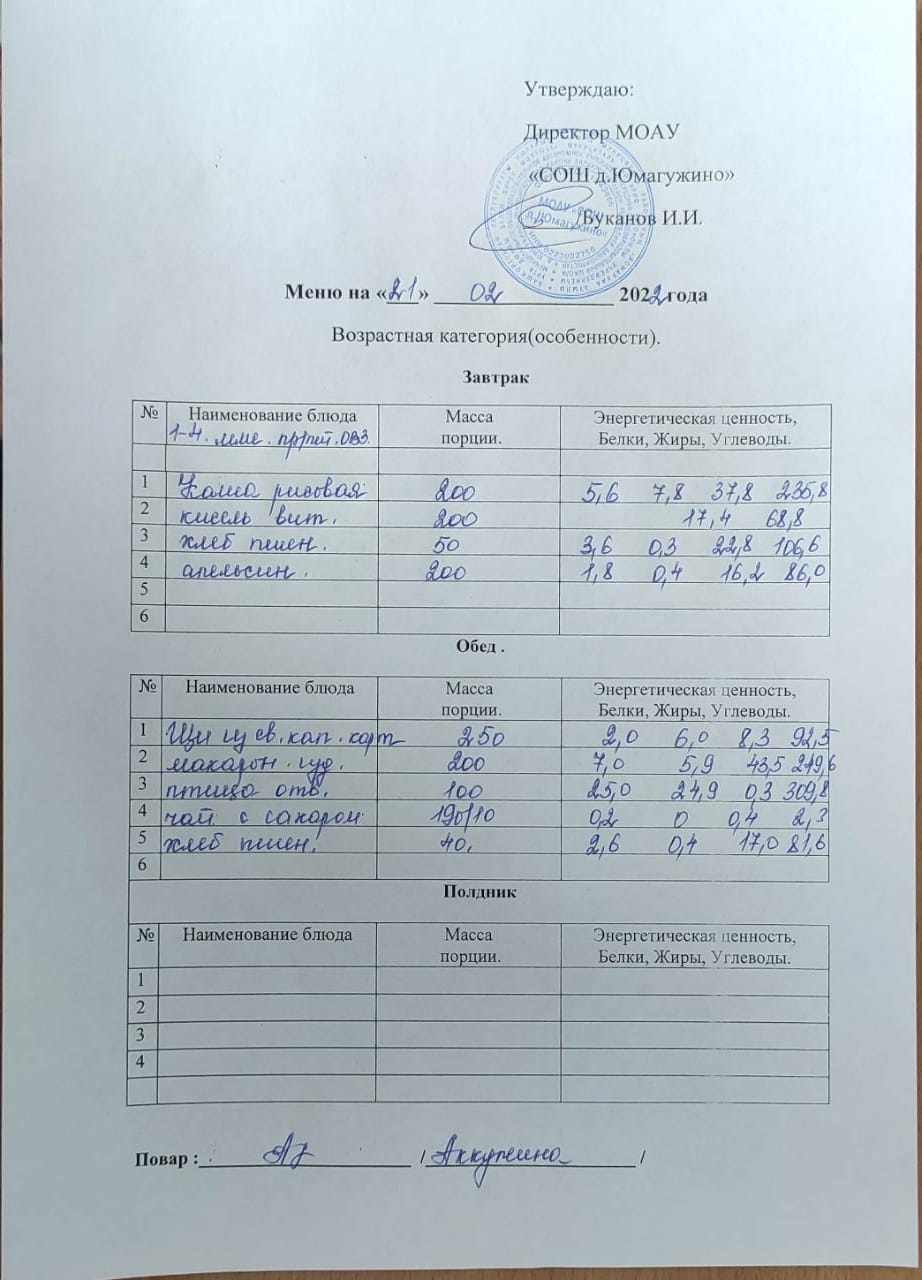 Утверждаю:
Директор МОАУ
«СОШ д.Юмагужино»
/Буканов И.И.
МОАУ «СОШ
д.Юмагужино»
Меню на «21» 02 2022 года
Возрастная категория(особенности).
Завтрак
№ Наименование блюда Масса порции. Энергетическая ценность, Белки, Жиры, Углеводы.
1-4. ОВЗ.
1 Каша рисовая 200 5,6 7,8 37,8 235,8
2 кисель вит. 200 17,4 68,8
3 хлеб пшен. 50 3,6 0,3 22,8 106,6
4 апельсин. 200 1,8 0,4 16,2 86,0
5
6
Обед .
№ Наименование блюда Масса порции. Энергетическая ценность, Белки, Жиры, Углеводы.
1 Щи из св. кап. карт 250 2,0 6,0 8,3 92,5
2 макарон. изд. 200 7,0 5,9 43,5 249,6
3 птица отв. 100 25,0 24,9 0,3 309,8
4 чай с сахаром 190/10 0,2 0 0,4 2,3
5 хлеб пшен. 40. 2,6 0,4 17,0 81,6
6
Полдник
№ Наименование блюда Масса порции. Энергетическая ценность, Белки, Жиры, Углеводы.
1
2
3
4
Повар : / Аккужина /